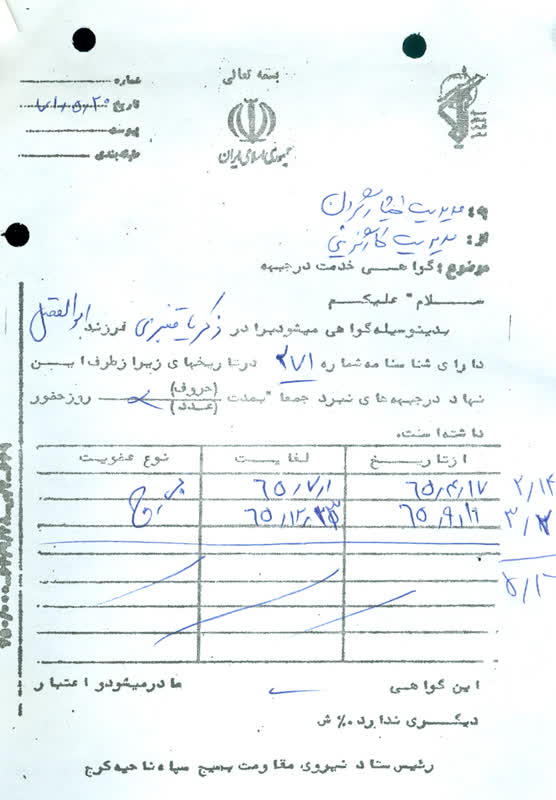 بسمه تعالی
جمهوری اسلامی ایران
شماره
تاریخ
پیوست
طبقه‌بندی
به: مدیریت
از: مدیریت کارگزینی
موضوع: گواهی خدمت در جبهه
سلام" علیکم
بدینوسیله گواهی میشود برادر ذکریا قنبری فرزند ابوالفضل
دارای شناسنامه شماره ۲۷۱ در تاریخهای زیر از طرف این
نهاد در جبهه‌های نبرد جمعا" بمدت (حروف) (عدد) روز حضور
داشته است.
از تاریخ لغایت نوع عضویت
۶۵،۴،۱۷ ۶۵،۷،۱
این گواهی صادر میشود و اعتبار
دیگری ندارد.٪ ش
رئیس ستاد نیروی مقاومت بسیج سپاه ناحیه کرج